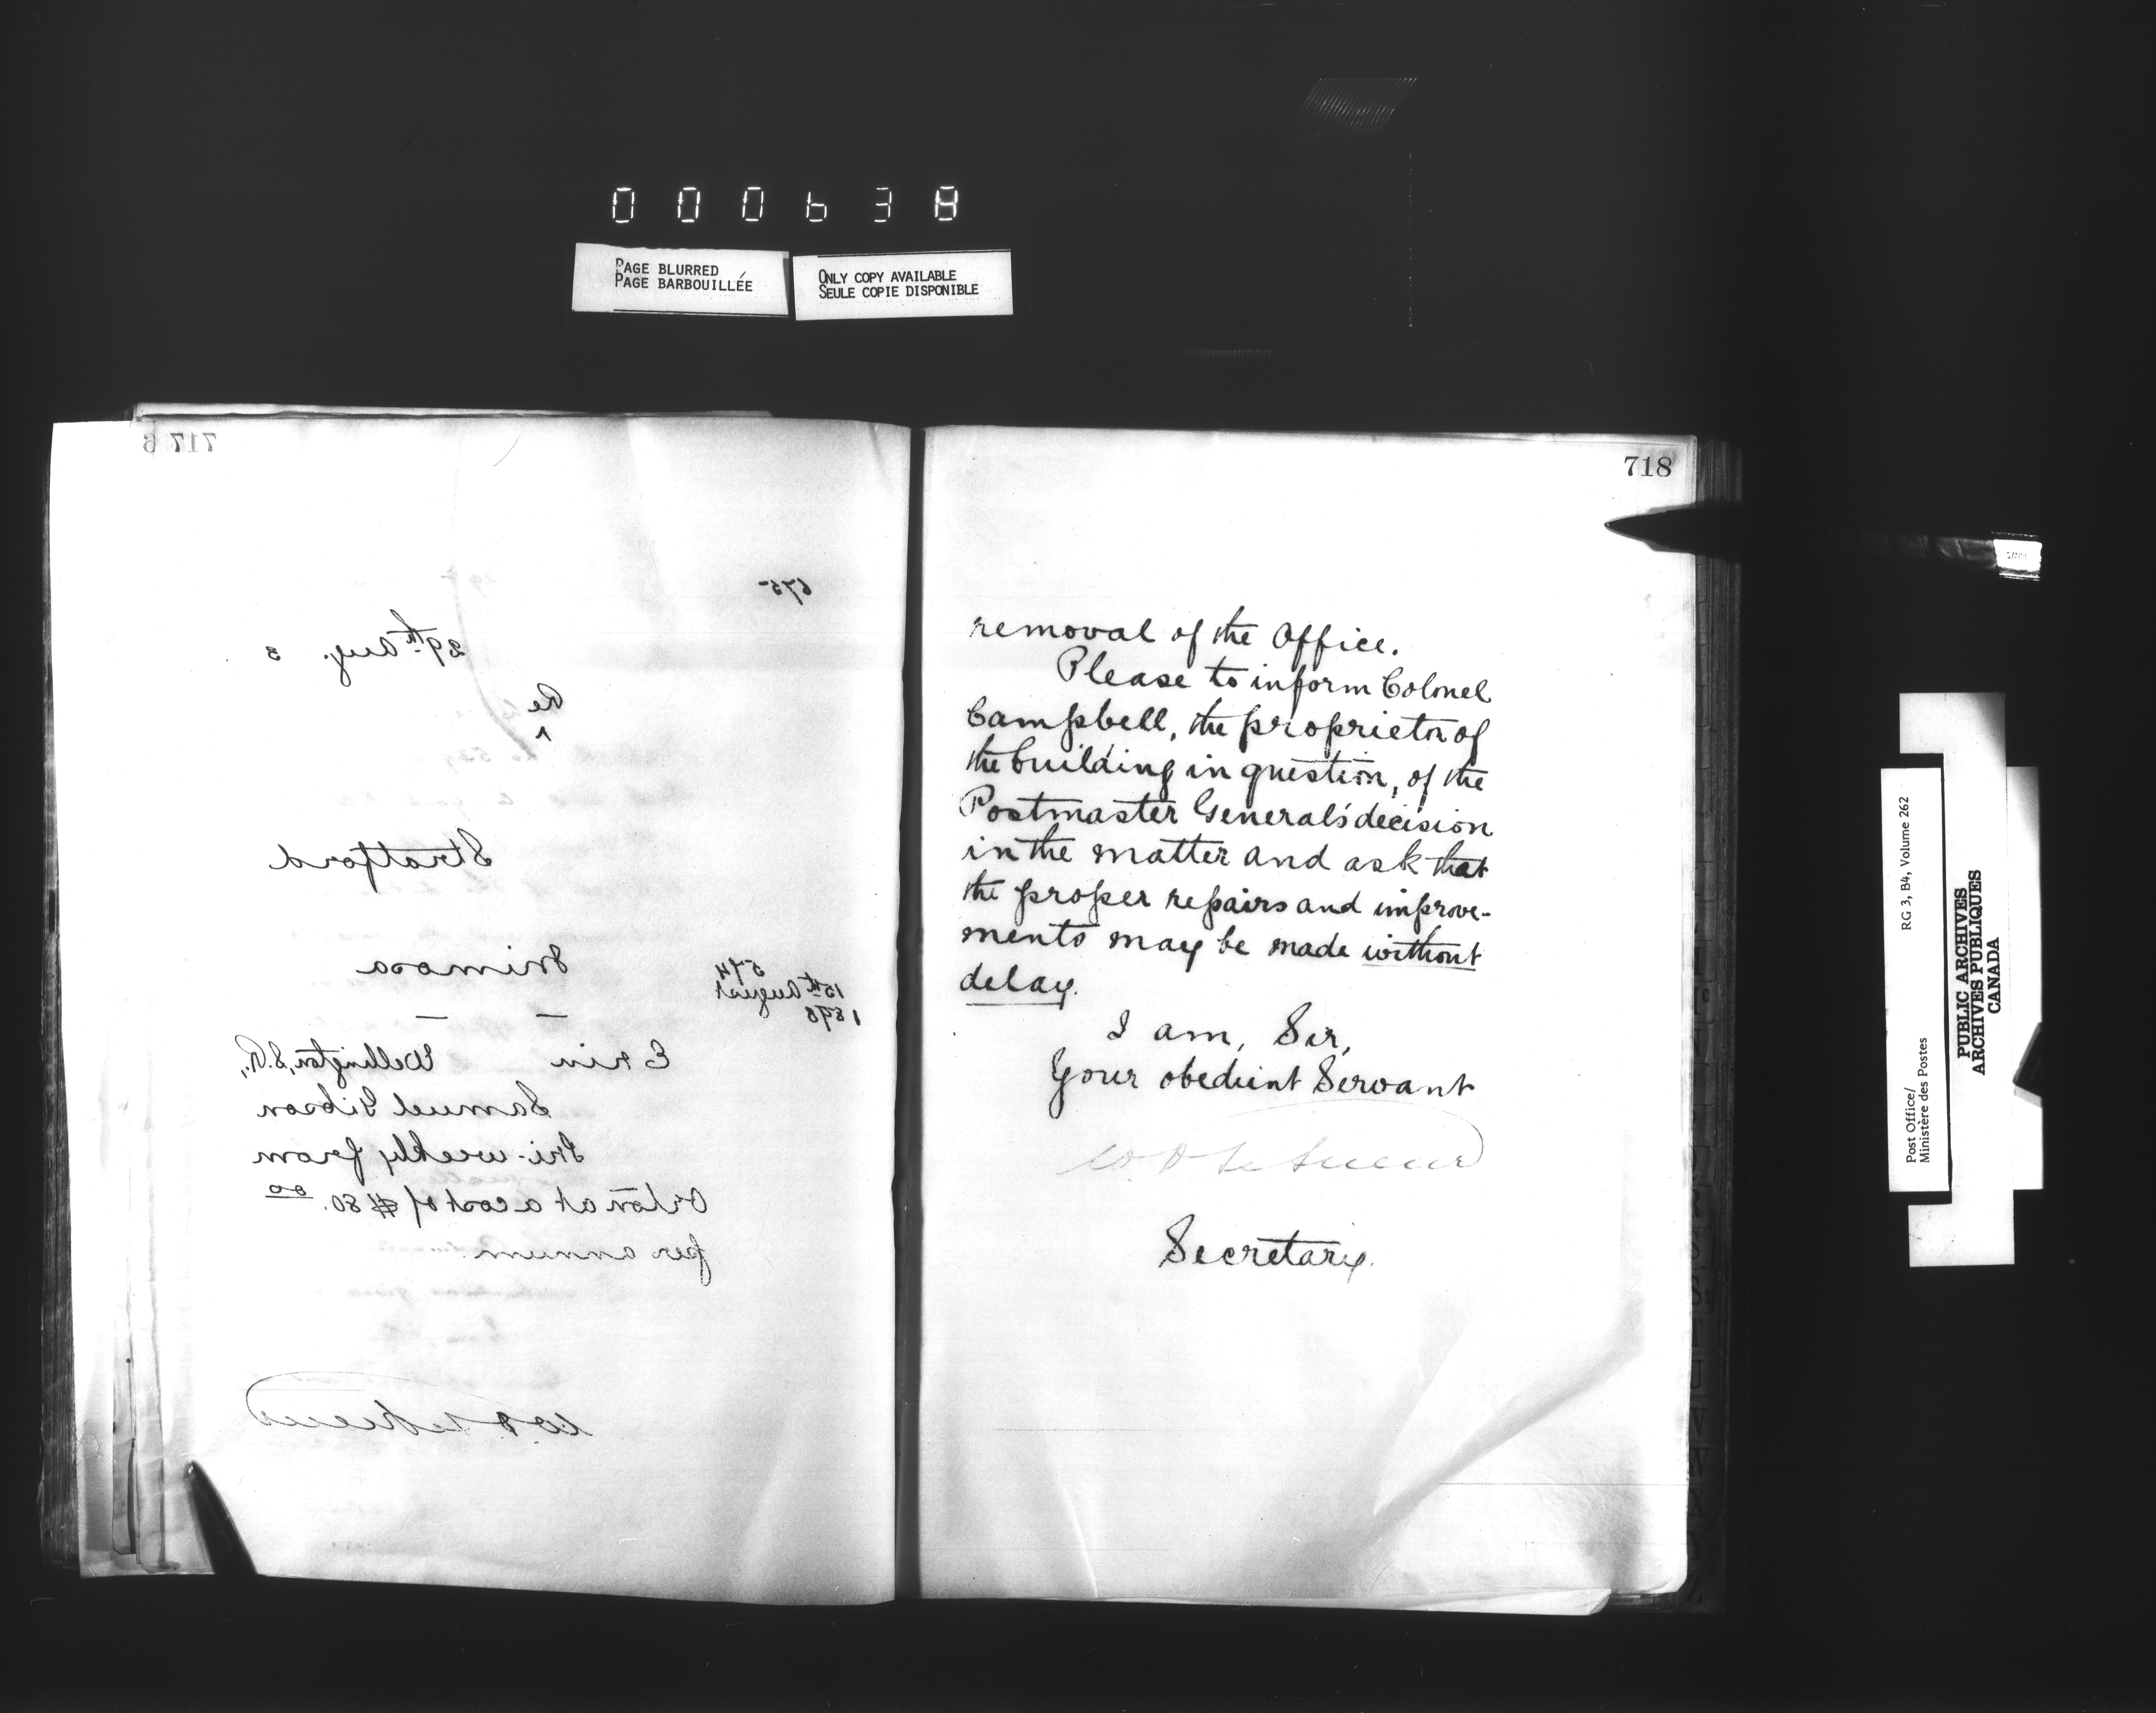 000638
PAGE BLURRED
PAGE BARBOUILLÉE
ONLY COPY AVAILABLE
SEULE COPIE DISPONIBLE
717 6
675
29th Aug. 3
Re
^
Stratford
574
15th August
1893
Mimosa
— —
Erin Wellington, S.R.,
Samuel Gibson
Tri-weekly from
Orton at a cost of $80.00
per annum.
W D LeSueur
718
removal of the Office.
Please to inform Colonel
Campbell, the proprietor of
the building in question, of the
Postmaster General's decision
in the matter and ask that
the proper repairs and improve-
ments may be made without
delay.
I am, Sir,
Your obedient Servant
W D LeSueur
Secretary.
Post Office/
Ministère des Postes
RG 3, B4, Volume 262
PUBLIC ARCHIVES
ARCHIVES PUBLIQUES
CANADA